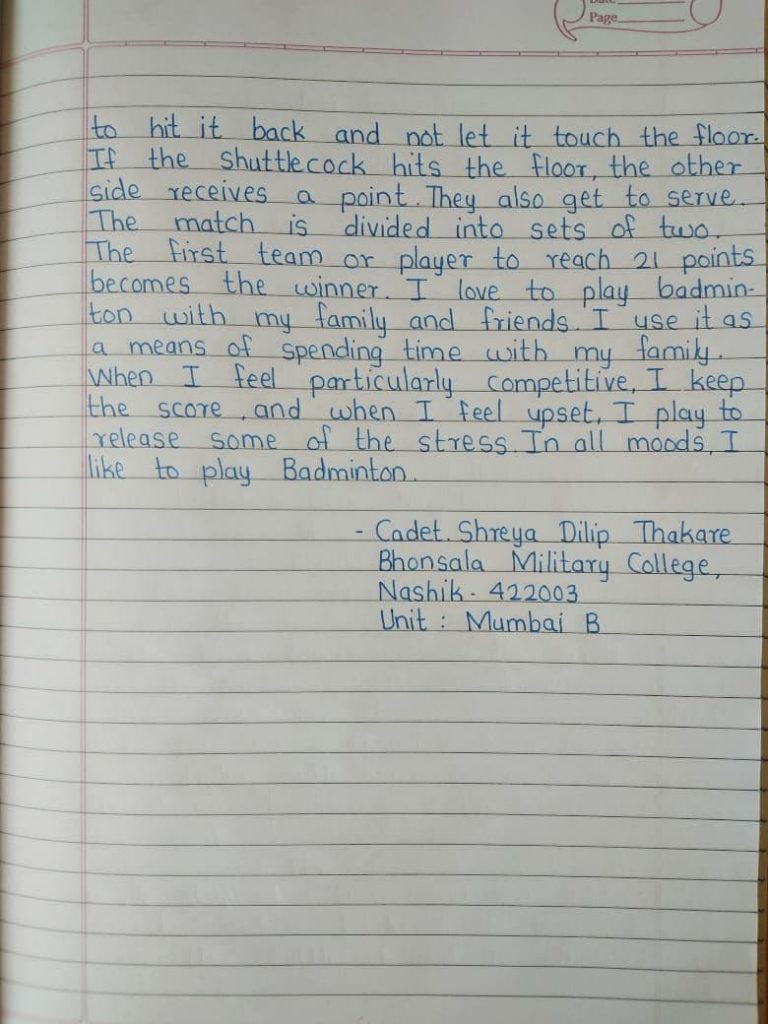 Page
to hit it back and not let it touch the floor.
If the shuttlecock hits the floor, the other
side receives a point. They also get to serve.
The match is divided into sets of two.
The first team or player to reach 21 points
becomes the winner. I love to play badmin-
ton with my family and friends. I use it as
a means of spending time with my family.
When I feel particularly competitive, I keep
the score, and when I feel upset, I play to
release some of the stress. In all moods, I
like to play Badminton.
- Cadet. Shreya Dilip Thakare
Bhonsala Military College,
Nashik - 422003
Unit : Mumbai B